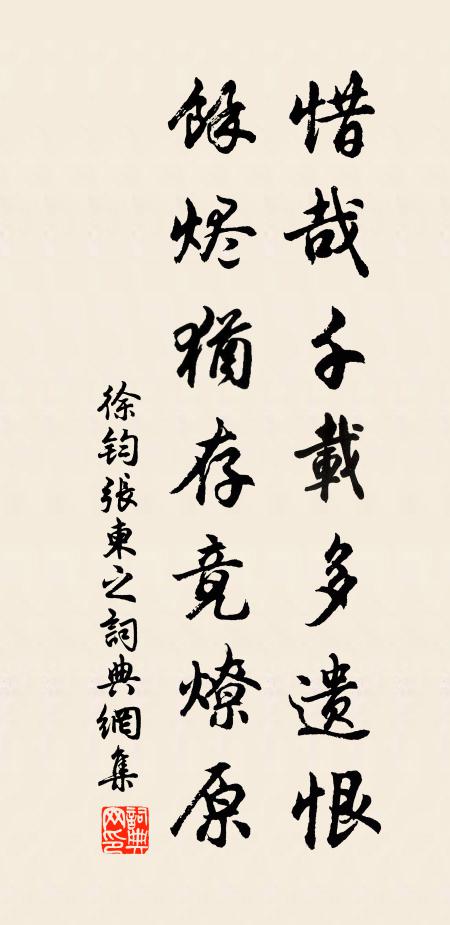 惜哉千載多遺恨
餘烬猶存竟燎原
徐鈞張東之詞典網集
詞典網印